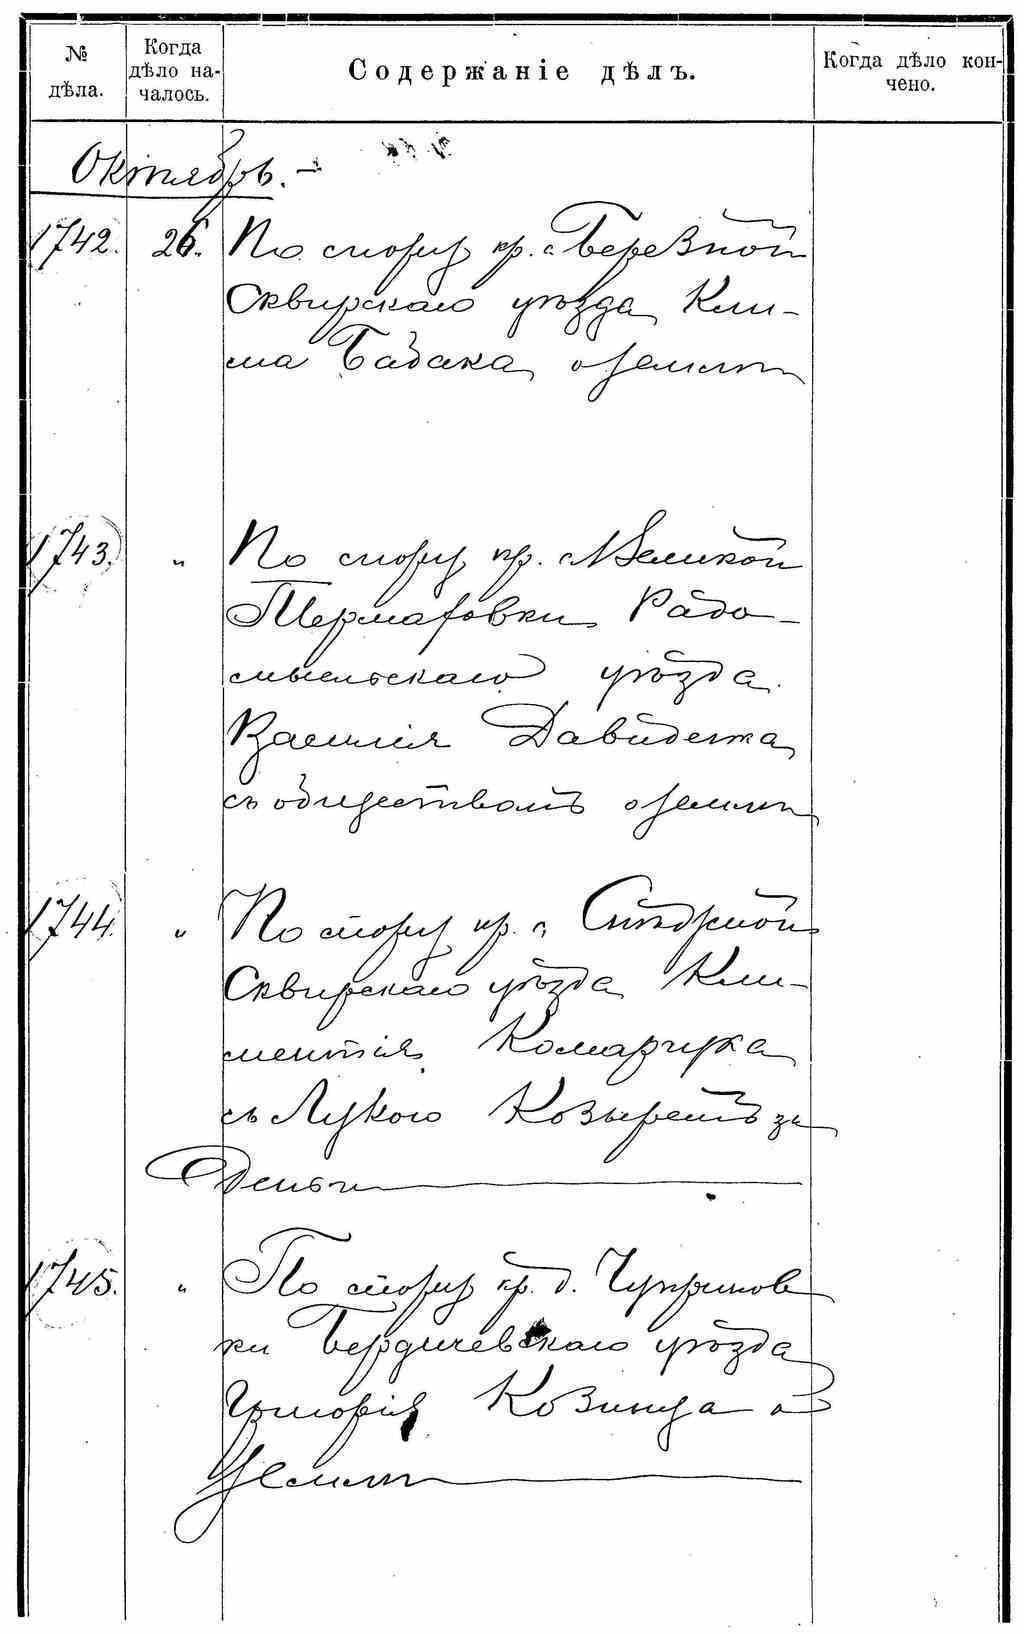 № дѣла.
Когда дѣло на-чалось.
Содержаніе дѣлъ.
Когда дѣло кон-чено.
Октябрь.
1742. 26. По спору кр. с. Березной
Сквирскаго уѣзда Кли-
ма Бабака о земли
1743. " По спору кр. с. Великой
Термаховки Радо-
мысльскаго уѣзда
Василія Давиденка
съ обществомъ о земли
1744. " По спору кр. с.
Сквирскаго уѣзда Кли-
ментія Комарчука
съ Лукою Козыремъ за
Деньги
1745. " По спору кр. д. Чупринов
ки Бердичевскаго уѣзда
Григорія Козинца о
Земли